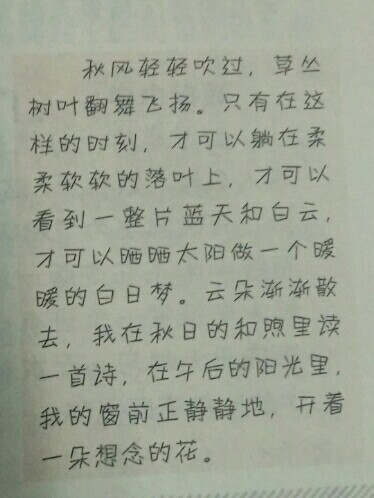 秋风轻轻吹过，草丛
树叶翻舞飞扬。只有在这
样的时刻，才可以躺在柔
柔软软的落叶上，才可以
看到一整片蓝天和白云，
才可以晒晒太阳做一个暖
暖的白日梦。云朵渐渐散
去，我在秋日的和煦里读
一首诗，在午后的阳光里，
我的窗前正静静地，开着
一朵想念的花。